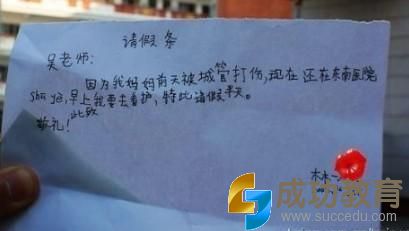 请假条
吴老师:
因为我妈妈前天被城管打伤,现在还在东南医院
shu ye,早上我要去看护,特此请假半天。
此致
敬礼!
林
成功教育
www.succedu.com